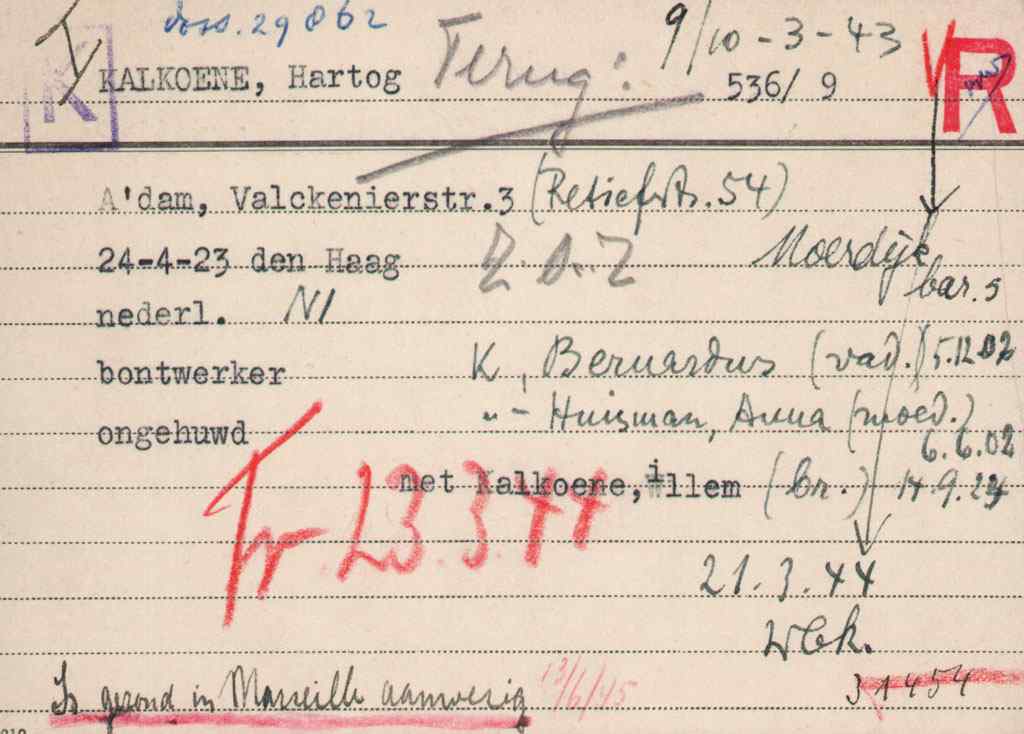 doss. 29862
K KALKOENE, Hartog Terug: 9/10-3-43
536/ 9 R
A'dam, Valckenierstr.3 (Retiefstr. 54)
24-4-23 den Haag Z.A.Z Moerdijk
nederl. NI bar. 5
bontwerker K, Bernardus (vad.) 5.12.02
ongehuwd "- Huisman, Anna (moed.)
6.6.02
met Kalkoene, Willem (br.) 14.9.24
Tr. 23.3.44
21.3.44
Wbk.
Is gezond in Marseille aanwezig 13/6/45 31454